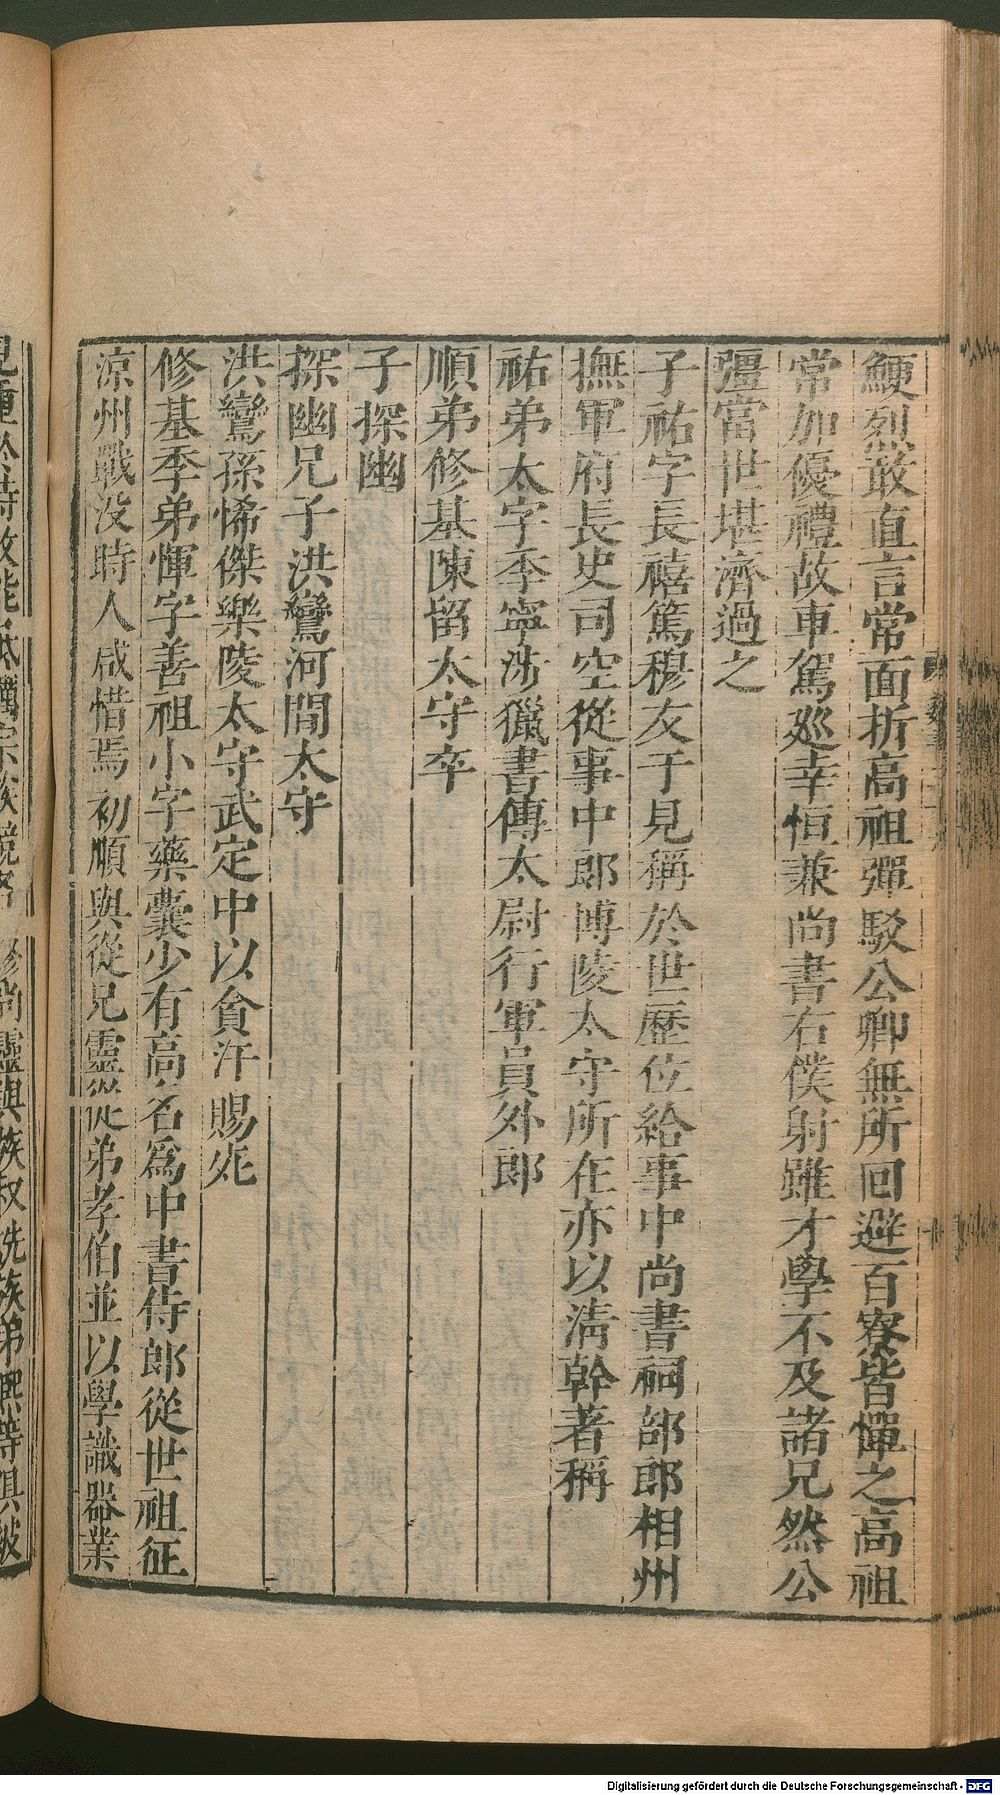 鯁烈敢直言常面折高祖彈駁公卿無所回避百寮皆憚之高祖
常加優禮故車駕巡幸恒兼尚書右僕射雖才學不及諸兄然公
彊當世堪濟過之
子祐字長禧篤穆友于見稱於世歷位給事中尚書祠部郎相州
撫軍府長史司空從事中郎博陵太守所在亦以清幹著稱
祐弟太字季寧涉獵書傳太尉行軍員外郎
順弟修基陳留太守卒
子探幽
探幽兄子洪鸞河間太守
洪鸞孫悕傑樂陵太守武定中以貪汙賜死
修基季弟惲字善祖小字藥囊少有高名為中書侍郎從世祖征
涼州戰没時人咸惜焉初順與從兄靈從弟孝伯並以學識器業
Digitalisierung gefördert durch die Deutsche Forschungsgemeinschaft - DFG